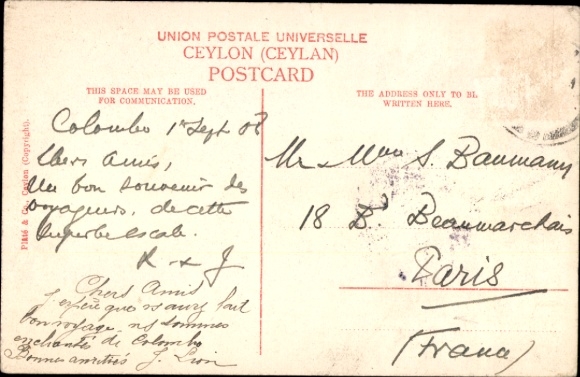 UNION POSTALE UNIVERSELLE
CEYLON (CEYLAN)
POSTCARD
THIS SPACE MAY BE USED
FOR COMMUNICATION.
THE ADDRESS ONLY TO BE
WRITTEN HERE.
Plâté & Co., Ceylon (Copyright).
Colombo 1r Sept 08
Chers Amis,
Un bon souvenir des
voyageurs, de cette
superbe escale.
R & J
Chers Amis
J espère que ns aurez fait
bon voyage. ns sommes
enchantés de Colombo
Bonnes amitiés J.
Mr Mme S. Baumann
18 Bd Beaumarchais
Paris
(France)